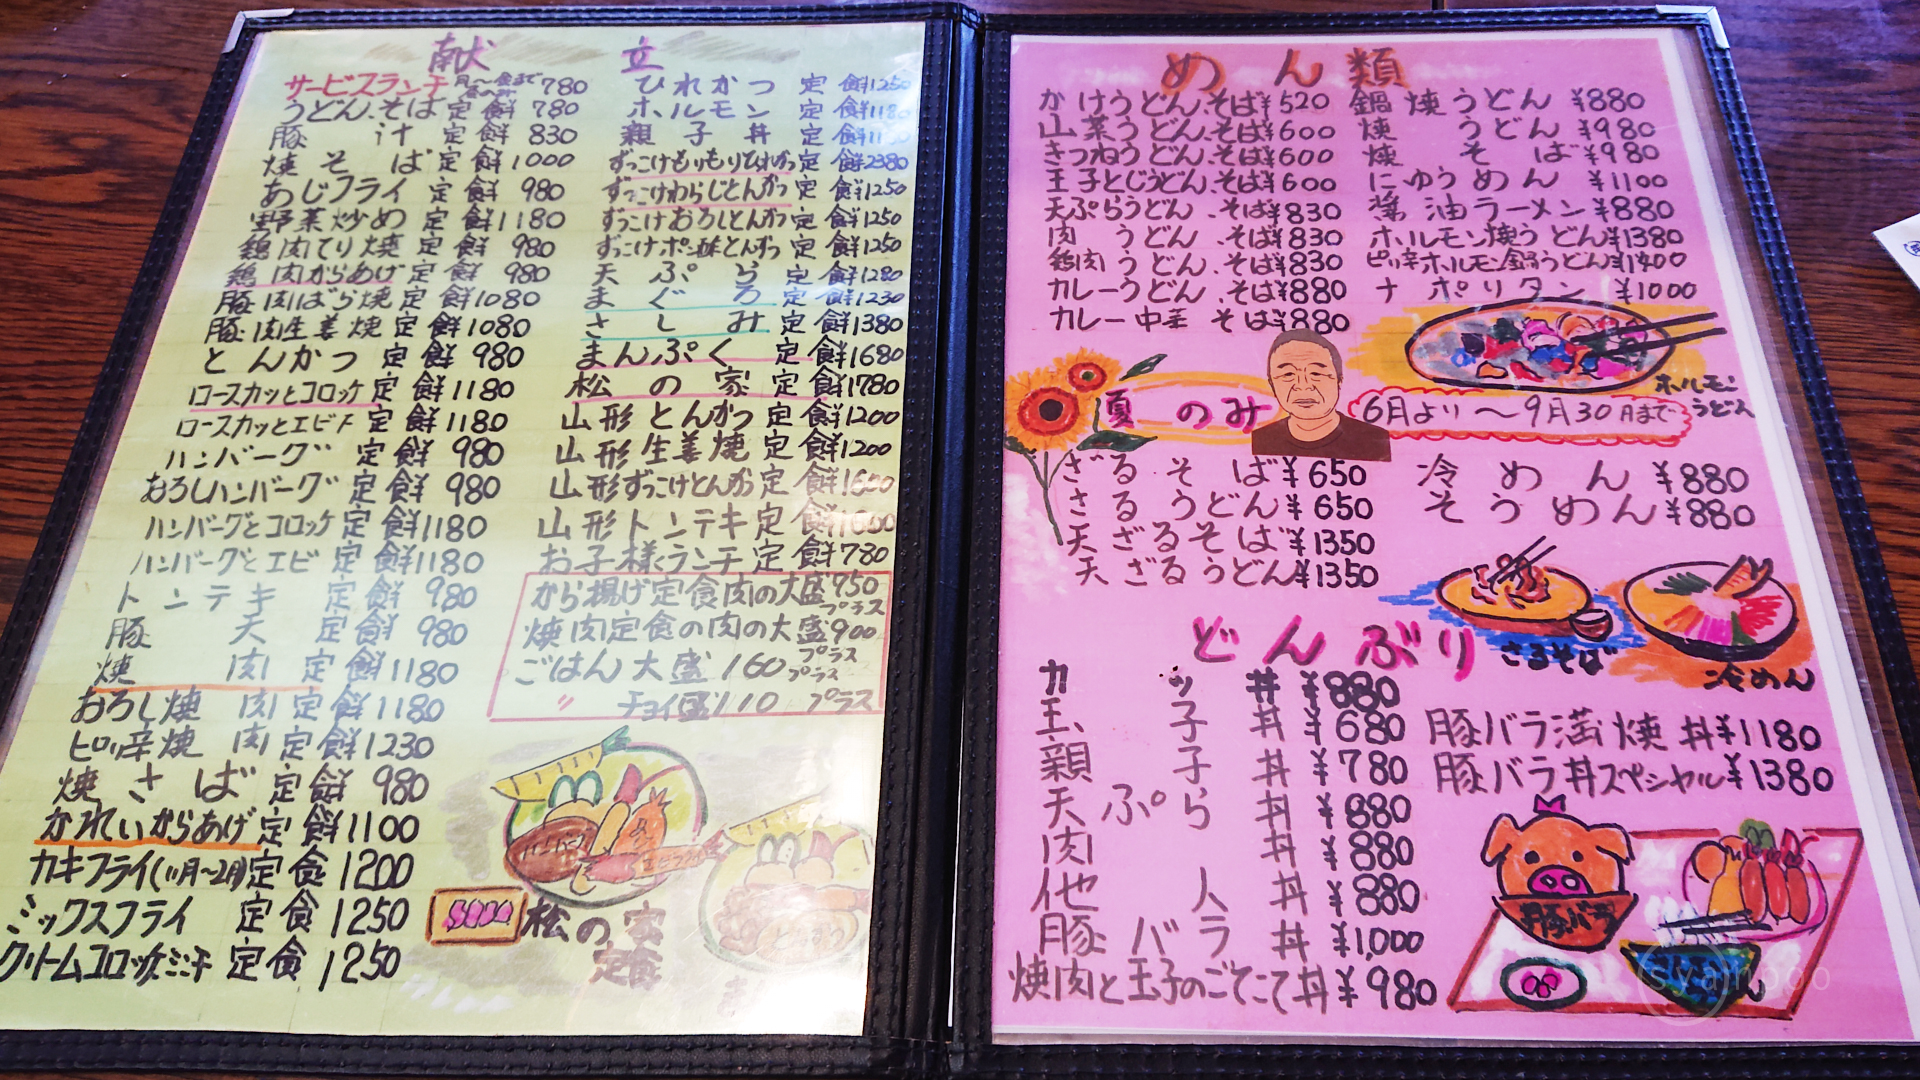 献立
サービスランチ 780
うどん、そば定餅 780
豚汁定餅 830
焼そば定餅 1000
あじフライ定餅 980
野菜炒め定餅 1180
鶏肉てり焼定餅 980
鶏肉からあげ定餅 980
豚肉ばら焼定餅 1080
豚肉生姜焼定餅 1080
とんかつ定餅 980
ロースカツとコロッケ定餅 1180
ロースカツとエビF定餅 1180
ハンバーグ定餅 980
おろしハンバーグ定餅 980
ハンバーグとコロッケ定餅 1180
ハンバーグとエビ定餅 1180
トンテキ定餅 980
豚天定餅 980
焼肉定餅 1180
おろし焼肉定餅 1180
ピリ辛焼肉定餅 1230
焼さば定餅 980
かれいからあげ定餅 1100
カキフライ(11月〜2月)定食 1200
ミックスフライ定食 1250
クリームコロッケミンチ定食 1250
ひれかつ定餅 1250
ホルモン定餅
親子丼定餅
ずっこけもりもりひれかつ定餅 2380
ずっこけわらじとんかつ定餅 1250
ずっこけおろしとんかつ定餅 1250
ずっこけポン酢とんかつ定餅 1250
天ぷら定餅 1280
まぐろ定餅 1230
さしみ定餅 1380
まんぷく定餅 1680
松の家定餅 1780
山形とんかつ定餅 1200
山形生姜焼定餅 1200
山形ずっこけとんかつ定餅
山形トンテキ定餅
お子様ランチ定餅 780
から揚げ定食肉の大盛 950 プラス
焼肉定食の肉の大盛 900 プラス
ごはん大盛 160 プラス
〃 チョイ盛 110 プラス
ハンバーグ
エビフライ
松の家
定食
めん類
かけうどん、そば ¥520
山菜うどん、そば ¥600
きつねうどん、そば ¥600
玉子とじうどん、そば ¥600
天ぷらうどん、そば ¥830
肉うどん、そば ¥830
鶏肉うどん、そば ¥830
カレーうどん、そば ¥880
カレー中華そば ¥880
鍋焼うどん ¥880
焼うどん ¥980
焼そば ¥980
にゅうめん ¥1100
醤油ラーメン ¥880
ホルモン焼うどん ¥1380
ピリ辛ホルモン鍋うどん ¥1400
ナポリタン ¥1000
ホルモン
うどん
夏のみ
6月より〜9月30日まで
ざるそば ¥650
ざるうどん ¥650
天ざるそば ¥1350
天ざるうどん ¥1350
冷めん ¥880
そうめん ¥880
ざるそば
冷めん
どんぶり
カツ丼 ¥880
玉子丼 ¥680
親子丼 ¥780
天ぷら丼 ¥880
肉丼 ¥880
他人丼 ¥880
豚バラ丼 ¥1,000
焼肉と玉子のごてごて丼 ¥980
豚バラ満焼丼 ¥1180
豚バラ丼スペシャル ¥1380
豚バラ